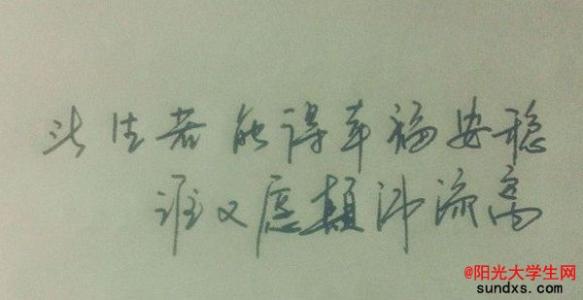 此生若能得幸福安稳
谁又愿颠沛流离
@阳光大学生网
sundxs.com